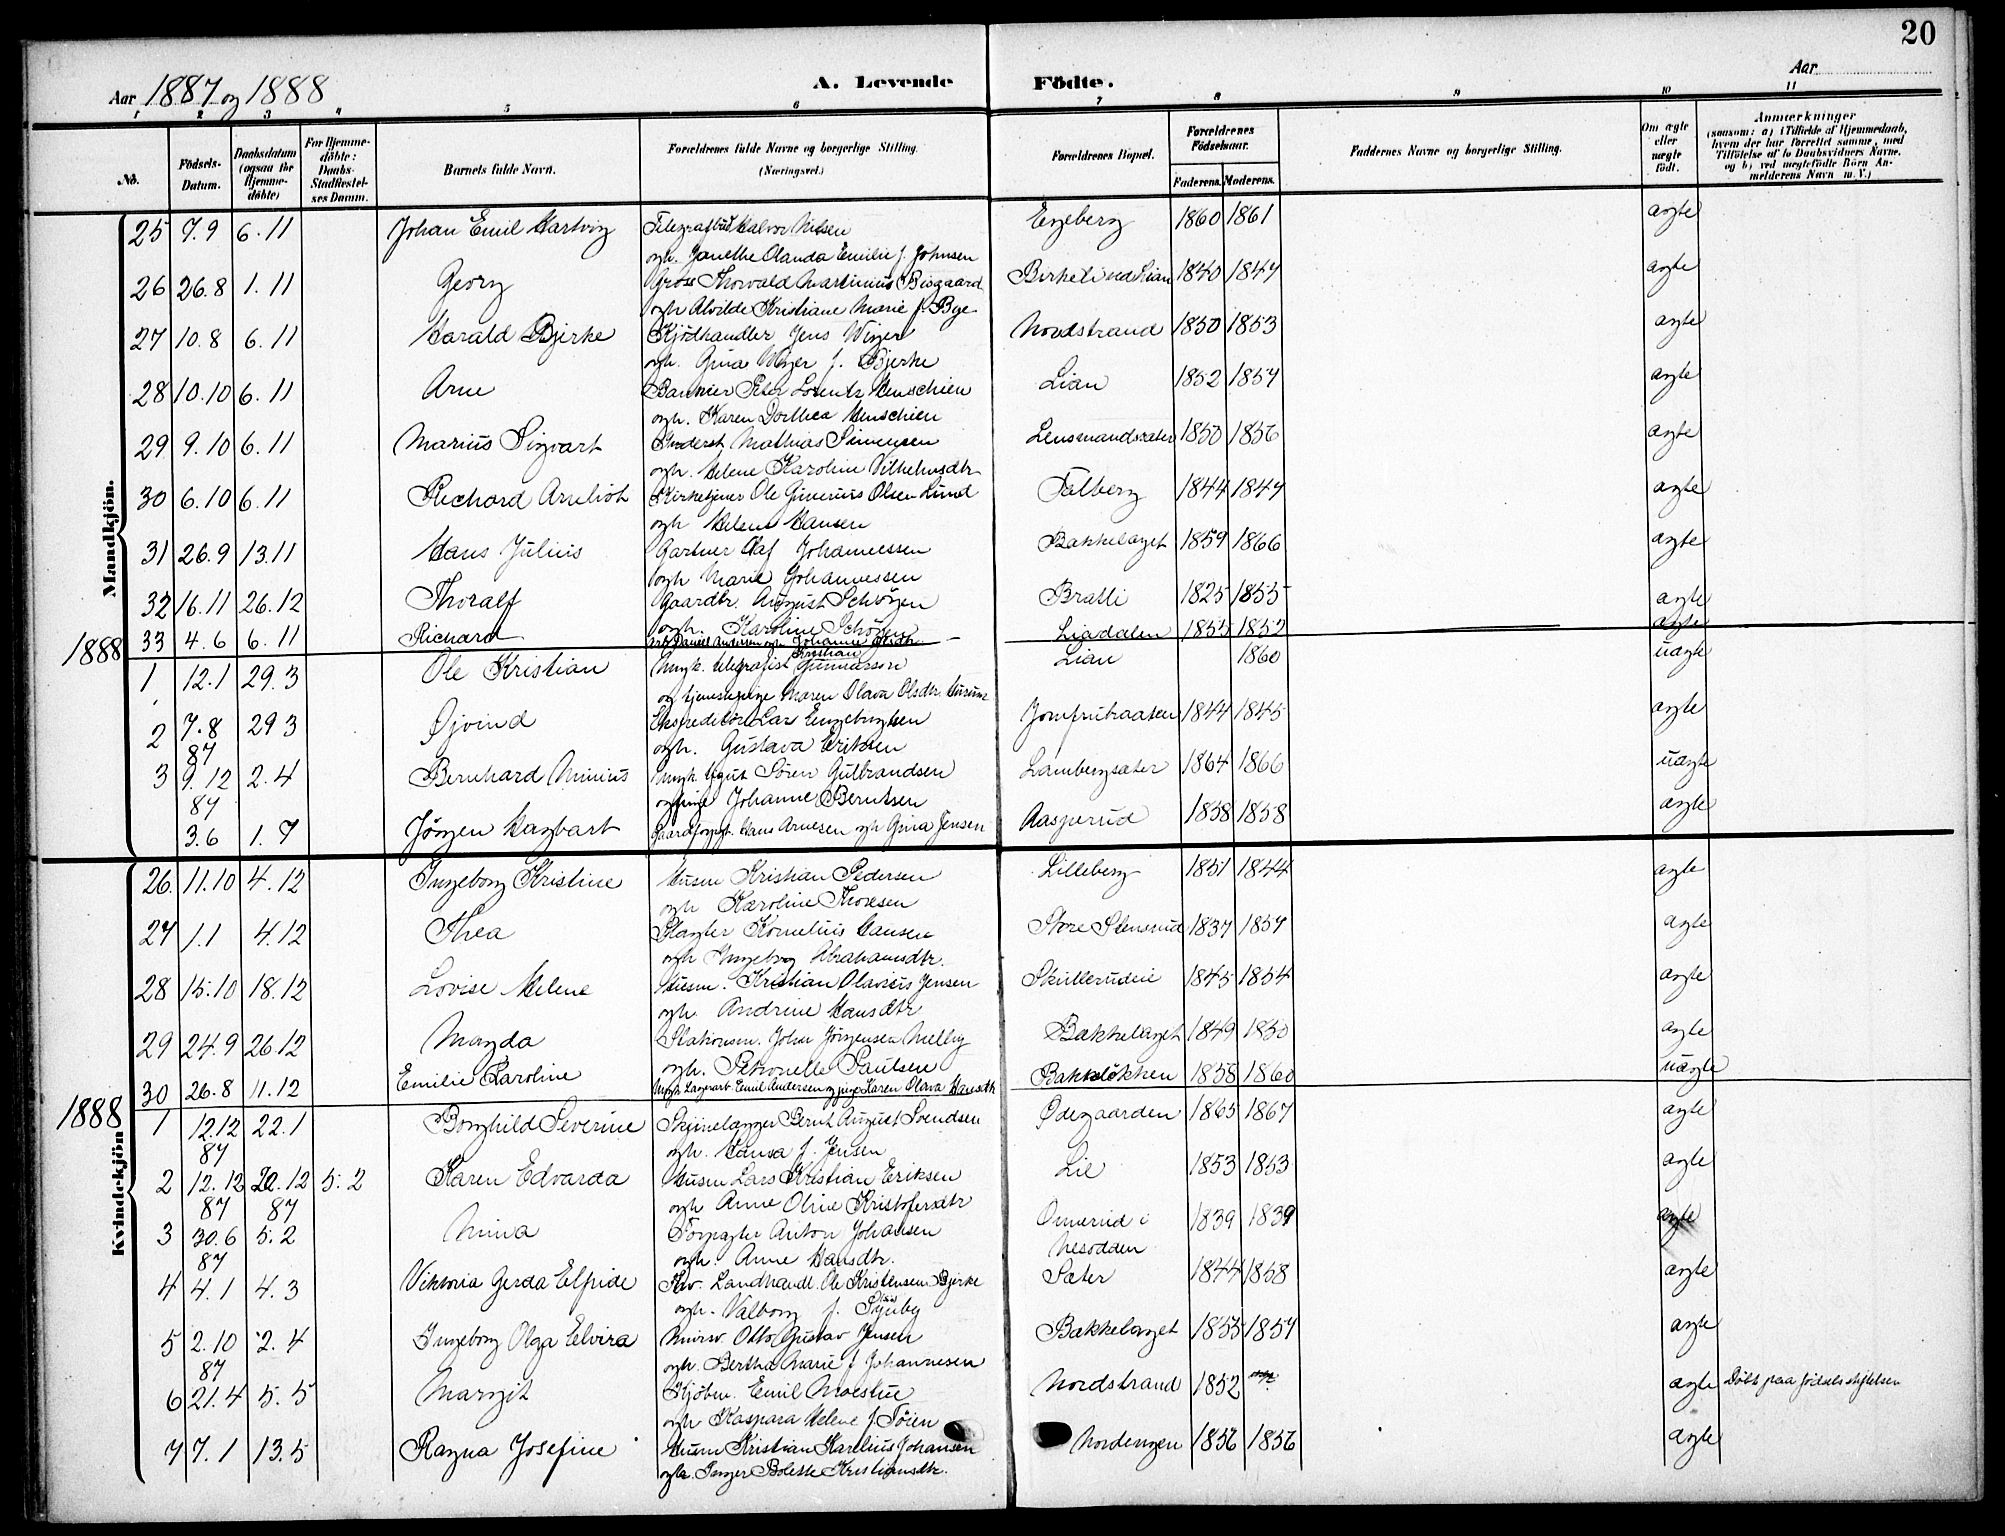 20
Aar 1887 og 1888
A. Levende Födte.
Aar
1 2 3 4 5 6 7 8 9 10 11
No. Födsels-Datum. Daabsdatum (ogsaa for Hjemme-döbte) For Hjemme-döbte: Daabs-Stadfæstel-ses Datum. Barnets fulde Navn. Forældrenes fulde Navne og borgerlige Stilling. (Næringsvei.) Forældrenes Bopæl. Forældrenes Födselsaar. Faderens. Moderens. Faddernes Navne og borgerlige Stilling. Om ægte eller uægte födt. Anmærkninger (saasom: a) i Tilfælde af Hjemmedaab, hvem der har forrettet samme, med Tilföielse af to Daabsvidners Navne, og b) ved uægtefödte Börn An-melderens Navn m. V.)
Mandkjön.
25 7.9 6.11 Johan Emil Hartvig Telegrafbud Halvor Nilsen Engeberg 1860 1861 ægte
ogh. Janethe Olanda Emilie f. Johnsen
26 26.8 1.11 Georg Gross Thorvald Martinius Bisgaard Birkeli ved Lian 1840 1847 ægte
ogh Alvilde Kristiane Marie f. Bye
27 10.8 6.11 Harald Bjerke Kjödhandler Jens Winger Nordstrand 1850 1853 ægte
ogh. Gina Winger f. Bjerke
28 10.10 6.11 Arne Bankier Peter Lorentz Henschien Lian 1852 1857 ægte
ogh. Karen Dorthea Henschien
29 9.10 6.11 Marius Sigvart Inderst Mathias Simensen Lensmandsæter 1850 1856 ægte
ogh. Helene Karoline Vilhelmsdtr
30 6.10 6.11 Richard Arnliot Kirketjener Ole Ginerius Olsen Lund Talberg 1844 1847 ægte
ogh Helene Hansen
31 26.9 13.11 Hans Julius Gartner Olaf Johannessen Bakkelaget 1859 1866 ægte
ogh Marie Johannessen
32 16.11 26.12 Thoralf Gaardbr. August Schögen Bratli 1825 1855 ægte
ogh. Karoline Schögen
33 4.6 6.11 Richard Arb. Daniel Andersen ogh Johanne Liadalen 1855 1852 ægte
1888
1 12.1 29.3 Ole Kristian Ungk. telegrafist Kristian Gunnarson Lian 1860 uægte
og tjenestepige Maren Olava Olsdtr.
2 7.8 87 29 3 Øjvind Expeditör Lars Engebrigtsen Jomfrubraaten 1844 1845 ægte
ogh. Gustava Eriksen
3 9.12 87 2.4 Bernhard Minius Ungk. Sören Gulbrandsen Lambergsæter 1864 1866 uægte
og pige Johanne Berntsen
3.6 1.7 Jörgen Hagbart Gaardforpagt. Hans Arnesen ogh Gina Jensen Aasperud 1858 1858 ægte
Kvindekjön
26 11.10 4.12 Ingeborg Kristine Husm Kristian Pedersen Lilleberg 1851 1844 ægte
ogh Karoline Thoresen
27 1.1 4.12 Thea Slagter Kornelius Hansen Store Stensrud 1837 1857 ægte
ogh Ingeborg Abrahamsdtr.
28 15.10 18.12 Lovise Helene Husm. Kristian Olavius Jensen Skullerudeie 1845 1854 ægte
ogh. Andrine Hansdtr
29 24.9 26.12 Magda Stationsm. Johan Jörgensen Melby Bakkelaget 1849 1850 ægte
ogh. Petronelle Paulsen
30 26.8 11.12 Emilie Karoline Ungk Lagerarb Emil Andersen og pige Karen Olava Hansdtr Bakkelökken 1858 1860 uægte
1888
1 12.12 87 22.1 Borghild Severine Skjinelægger Bernt August Svendsen Ødegaarden 1865 1867 ægte
ogh. Hansa f. Jensen
2 12.12 87 20.12 87 5.2 Karen Edvarda Husm Lars Kristian Eriksen Lie 1853 1853 ægte
ogh Anne Oline Kristofersdtr
3 30.6 87 5.2 Mina Forpagter Anton Johansen Ommerud i Nesodden 1839 1839 ægte
ogh. Anne Hansdtr.
4 4.1 4.3 Viktoria Gerda Elfride Fhv. Landhandl. Ole Kristensen Bjerke Sæter 1844 1858 ægte
ogh. Valborg f. Sjuby
5 2.10 87 2.4 Ingeborg Olga Elvira Mursv. Otto Gustav Jensen Bakkelaget 1855 1857 ægte
ogh. Bertha Marie f Johannesen
6 21.4 5.5 Margit Kjöbm. Emil Moestue Nordstrand 1852 ægte Döbt paa födselsstiftelsen
ogh Kaspara Helene f. Töien
7 7.1 13.5 Ragna Josefine Husm Kristian Karelius Johansen Nordengen 1856 1856 ægte
ogh. Inger Bolette Kristiansdtr.